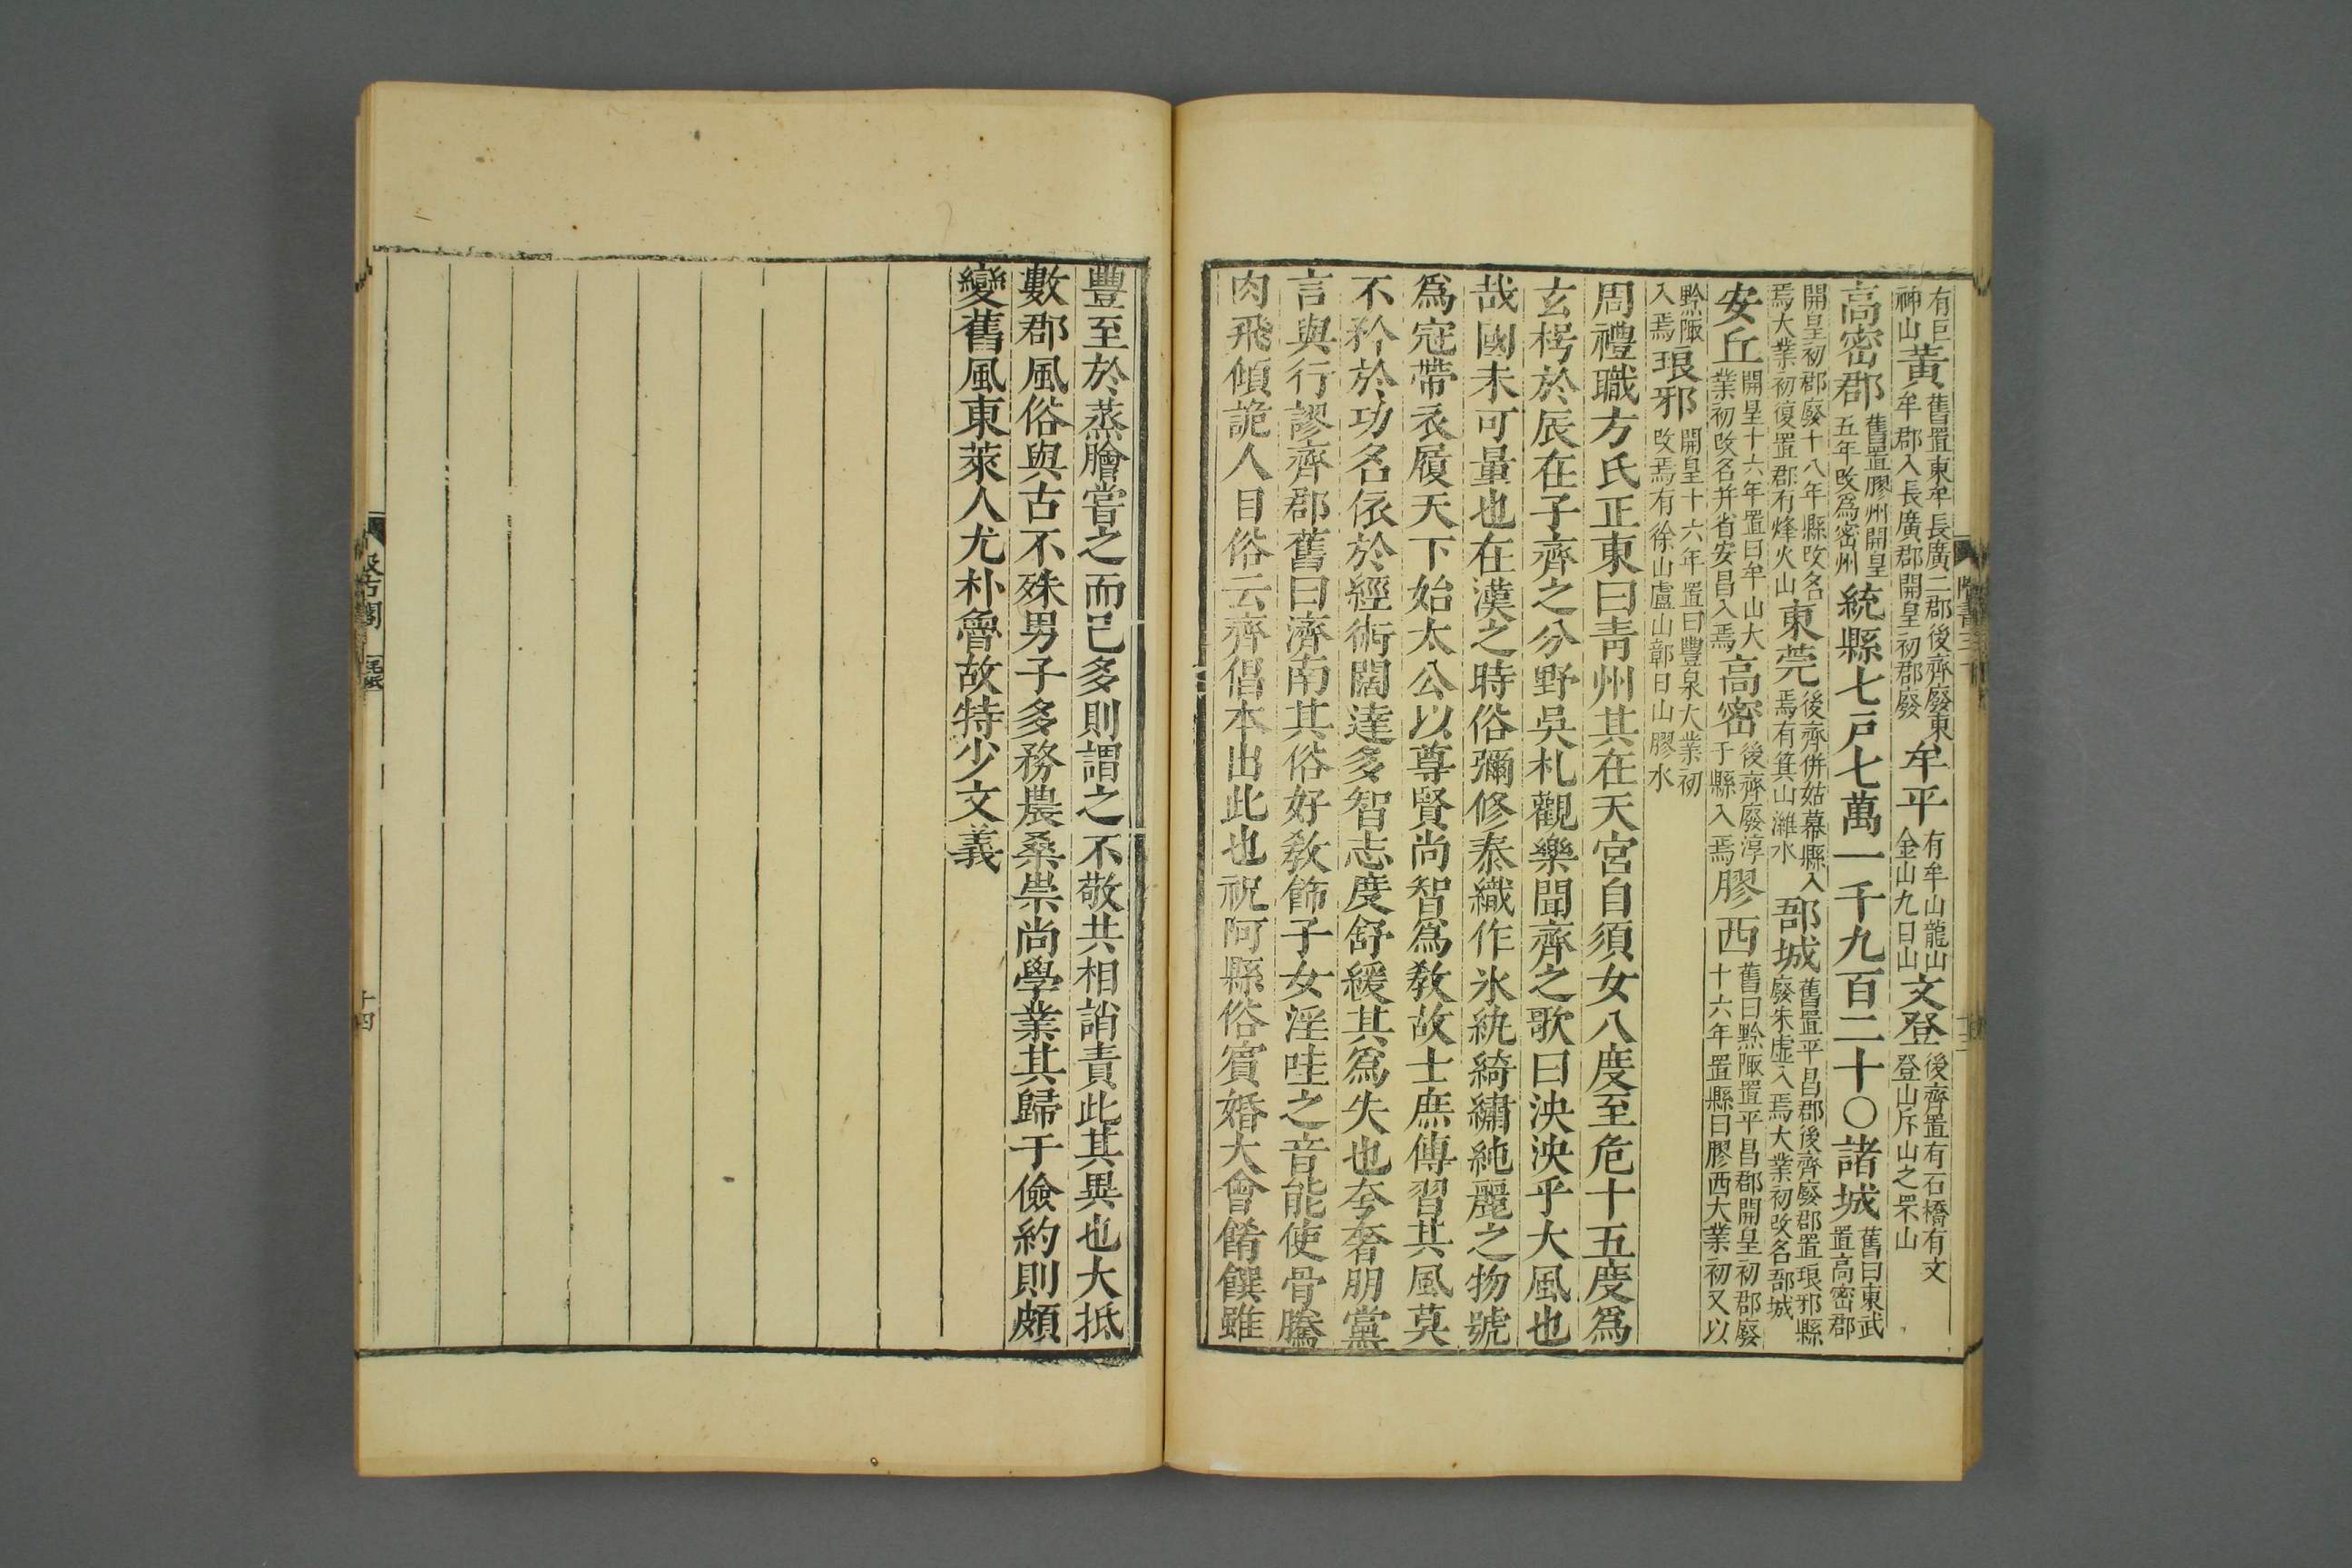 有巨神山黃舊置東牟長廣二郡後齊廢東牟郡入長廣郡開皇初郡廢牟平有牟山龍山金山九日山文登後齊置有石橋有文登山斥山之罘山
高密郡舊置膠州開皇五年改爲密州統縣七戸七萬一千九百二十〇諸城舊曰東武置高密郡
開皇初郡廢十八年縣改名焉大業初復置郡有烽火山東莞後齊併姑幕縣入焉有箕山濰水郚城舊置平昌郡後齊廢郡置琅邪縣廢朱虛入焉大業初改名郚城
安丘開皇十六年置曰牟山大業初改名并省安昌入焉高密後齊廢淳于縣入焉膠西舊曰黔陬置平昌郡開皇初郡廢十六年置縣曰膠西大業初又以
黔陬入焉琅邪開皇十六年置曰豐泉大業初改焉有徐山盧山鄣日山膠水
周禮職方氏正東曰靑州其在天宮自須女八度至危十五度爲
玄枵於辰在子齊之分野吳札觀樂聞齊之歌曰泱泱乎大風也
哉國未可量也在漢之時俗彌修泰織作氷紈綺繡純麗之物號
爲冠帶衣履天下始太公以尊賢尚智爲敎故士庶傳習其風莫
不矜於功名依於經術闊達多智志度舒緩其爲失也夸奢朋黨
言與行謬齊郡舊曰濟南其俗好敎飾子女淫哇之音能使骨騰
肉飛傾詭人目俗云齊倡本出此也祝阿縣俗賓婚大會餚饌雖
豐至於蒸膾嘗之而已多則謂之不敬共相誚責此其異也大抵
數郡風俗與古不殊男子多務農桑崇尚學業其歸于儉約則頗
變舊風東萊人尤朴魯故特少文義